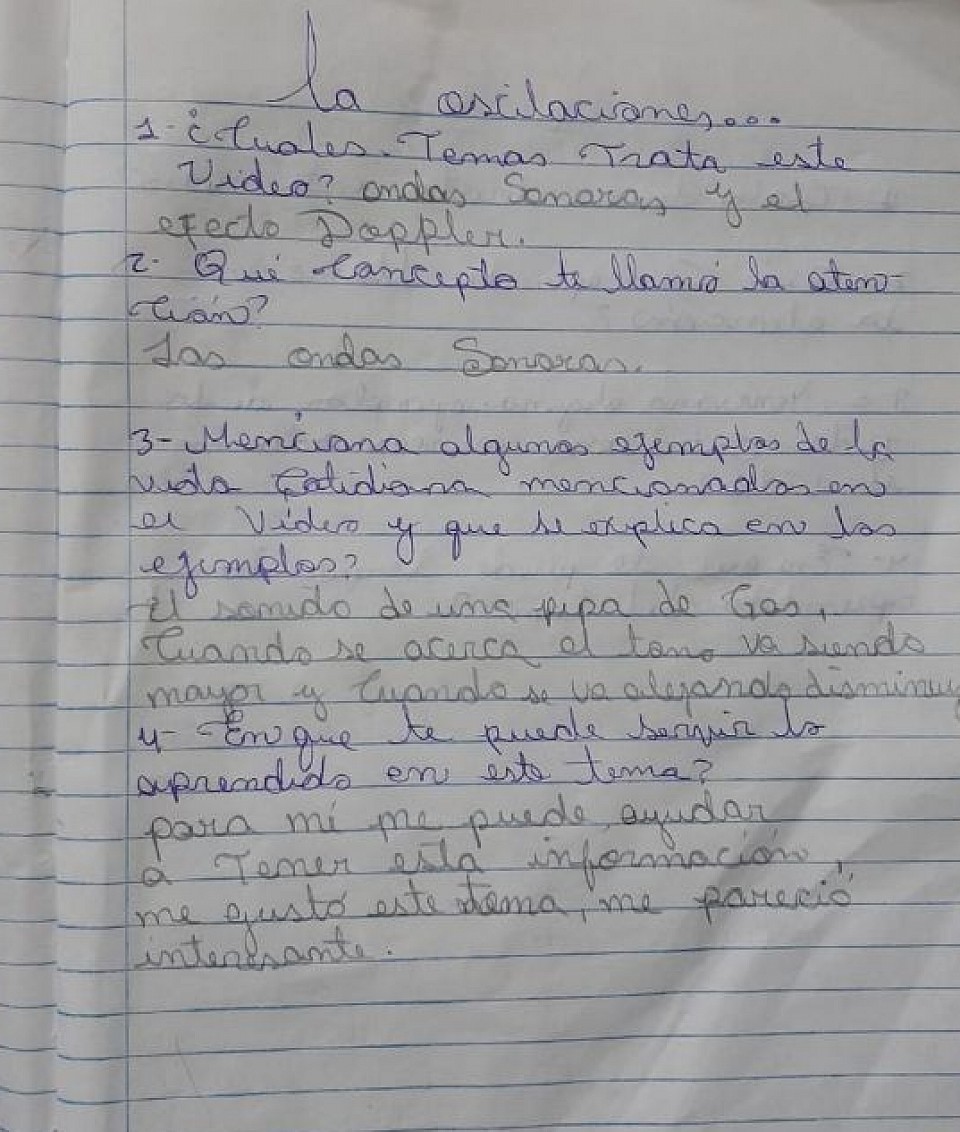 La oscilaciones...
1- ¿Cuales. Temas Trata este
Video? ondas Sonoras y el
efecto Doppler.
2- Qué Concepto te llamó la aten-
ción?
Las ondas Sonoras.
3- Menciona algunos ejemplos de la
vida Cotidiana mencionados en
el Video y que se explica en los
ejemplos?
El sonido de una pipa de Gas,
Cuando se acerca el tono va siendo
mayor y Cuando se va alejando disminuy
4- En que te puede servir lo
aprendido en este tema?
para mí me puede ayudar
a Tener esta información,
me gustó este tema, me pareció
interesante.